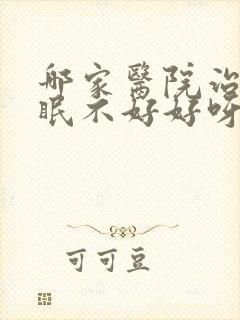 哪家醫院治
眠不好好呀
可可豆